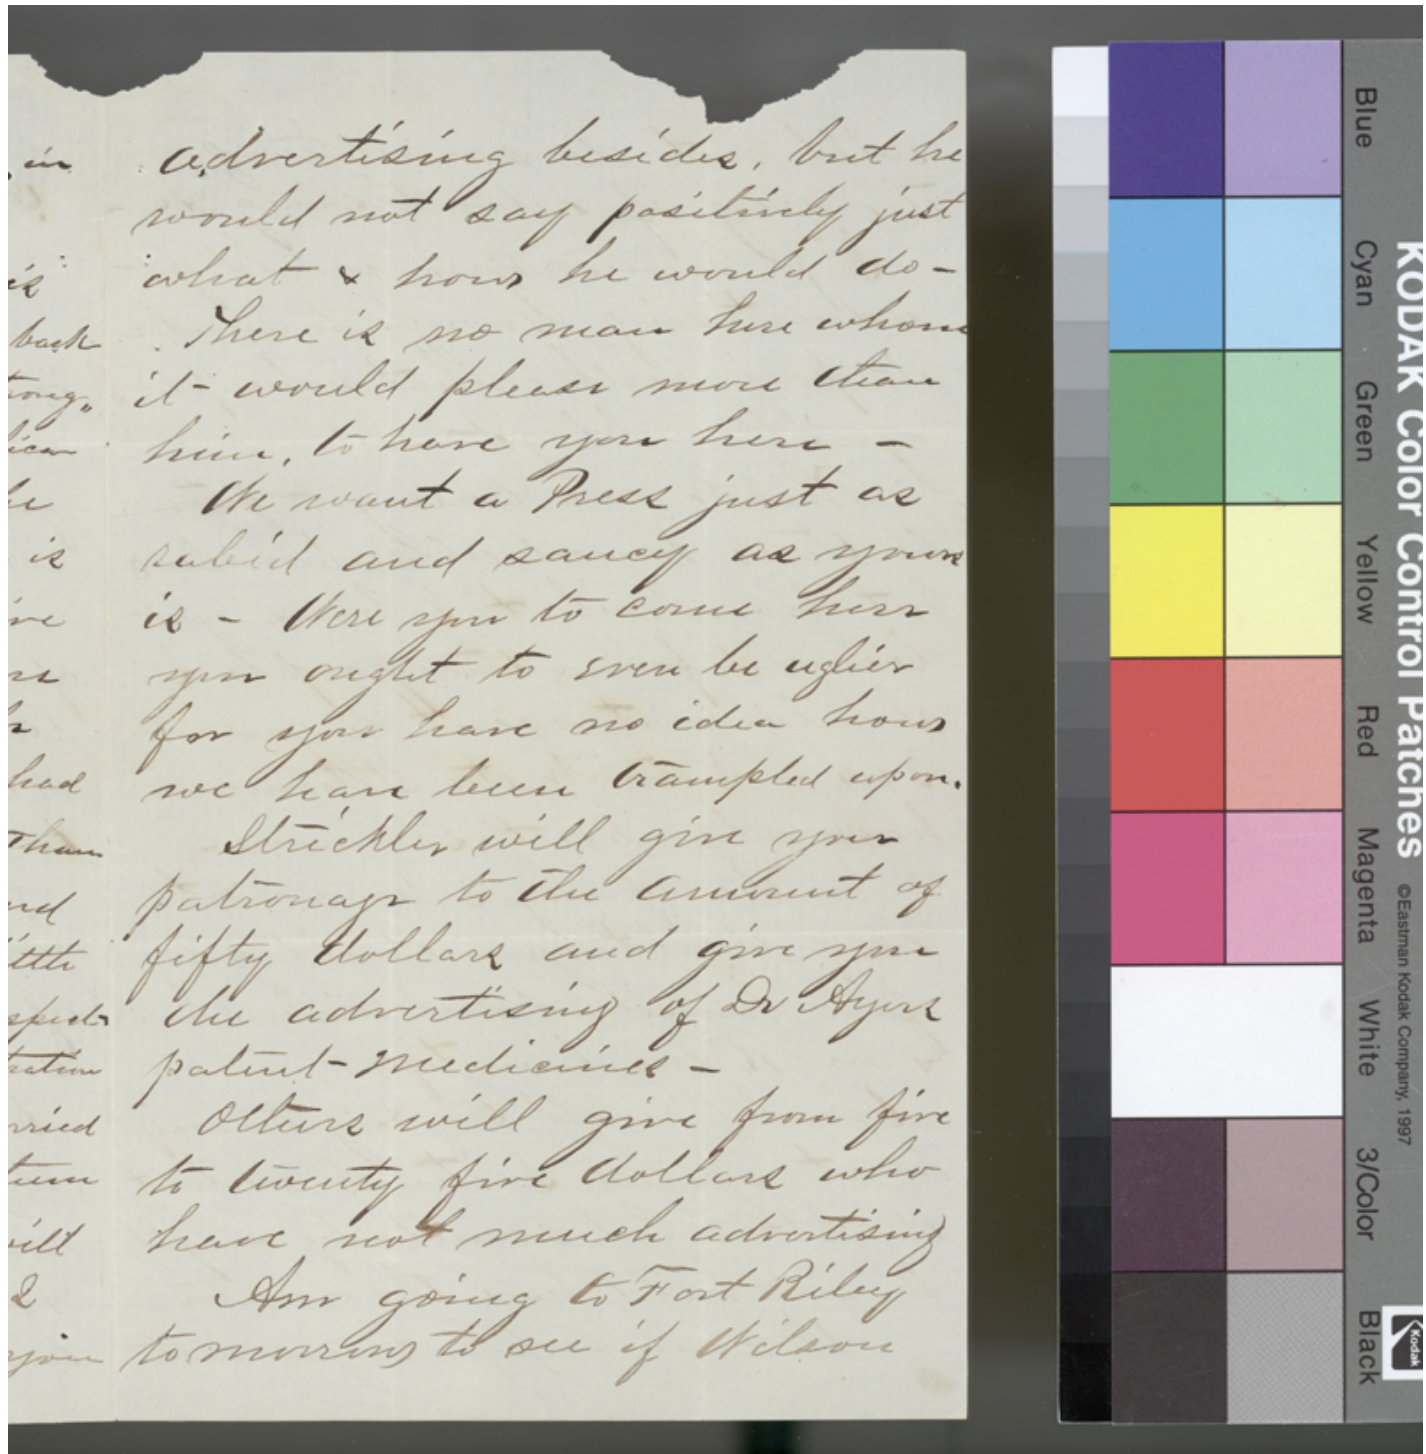 in
is
back
rong,,
ican
he
is
ve
ne
had
Than
nd
ittle
spect-
ration
rried
tum
ilt
I
you
advertising besides, but he
would not say positively just
what & how he would do -
There is no man here whom
it would please more than
him, to have you here -
We want a Press just as
rabid and saucy as yours
is - Were you to come here
you ought to even be uglier
for you have no idea how
we have been trampled upon.
Strickler will give your
patronage to the amount of
fifty dollars and give you
the advertising of Dr Ayers
patent - medicines -
Others will give from five
to twenty five dollars who
have not much advertising
Am going to Fort Riley
tomorrow to see if Wilson
KODAK Color Control Patches
©Eastman Kodak Company, 1997
Blue
Cyan
Green
Yellow
Red
Magenta
White
3/Color
Black
Kodak